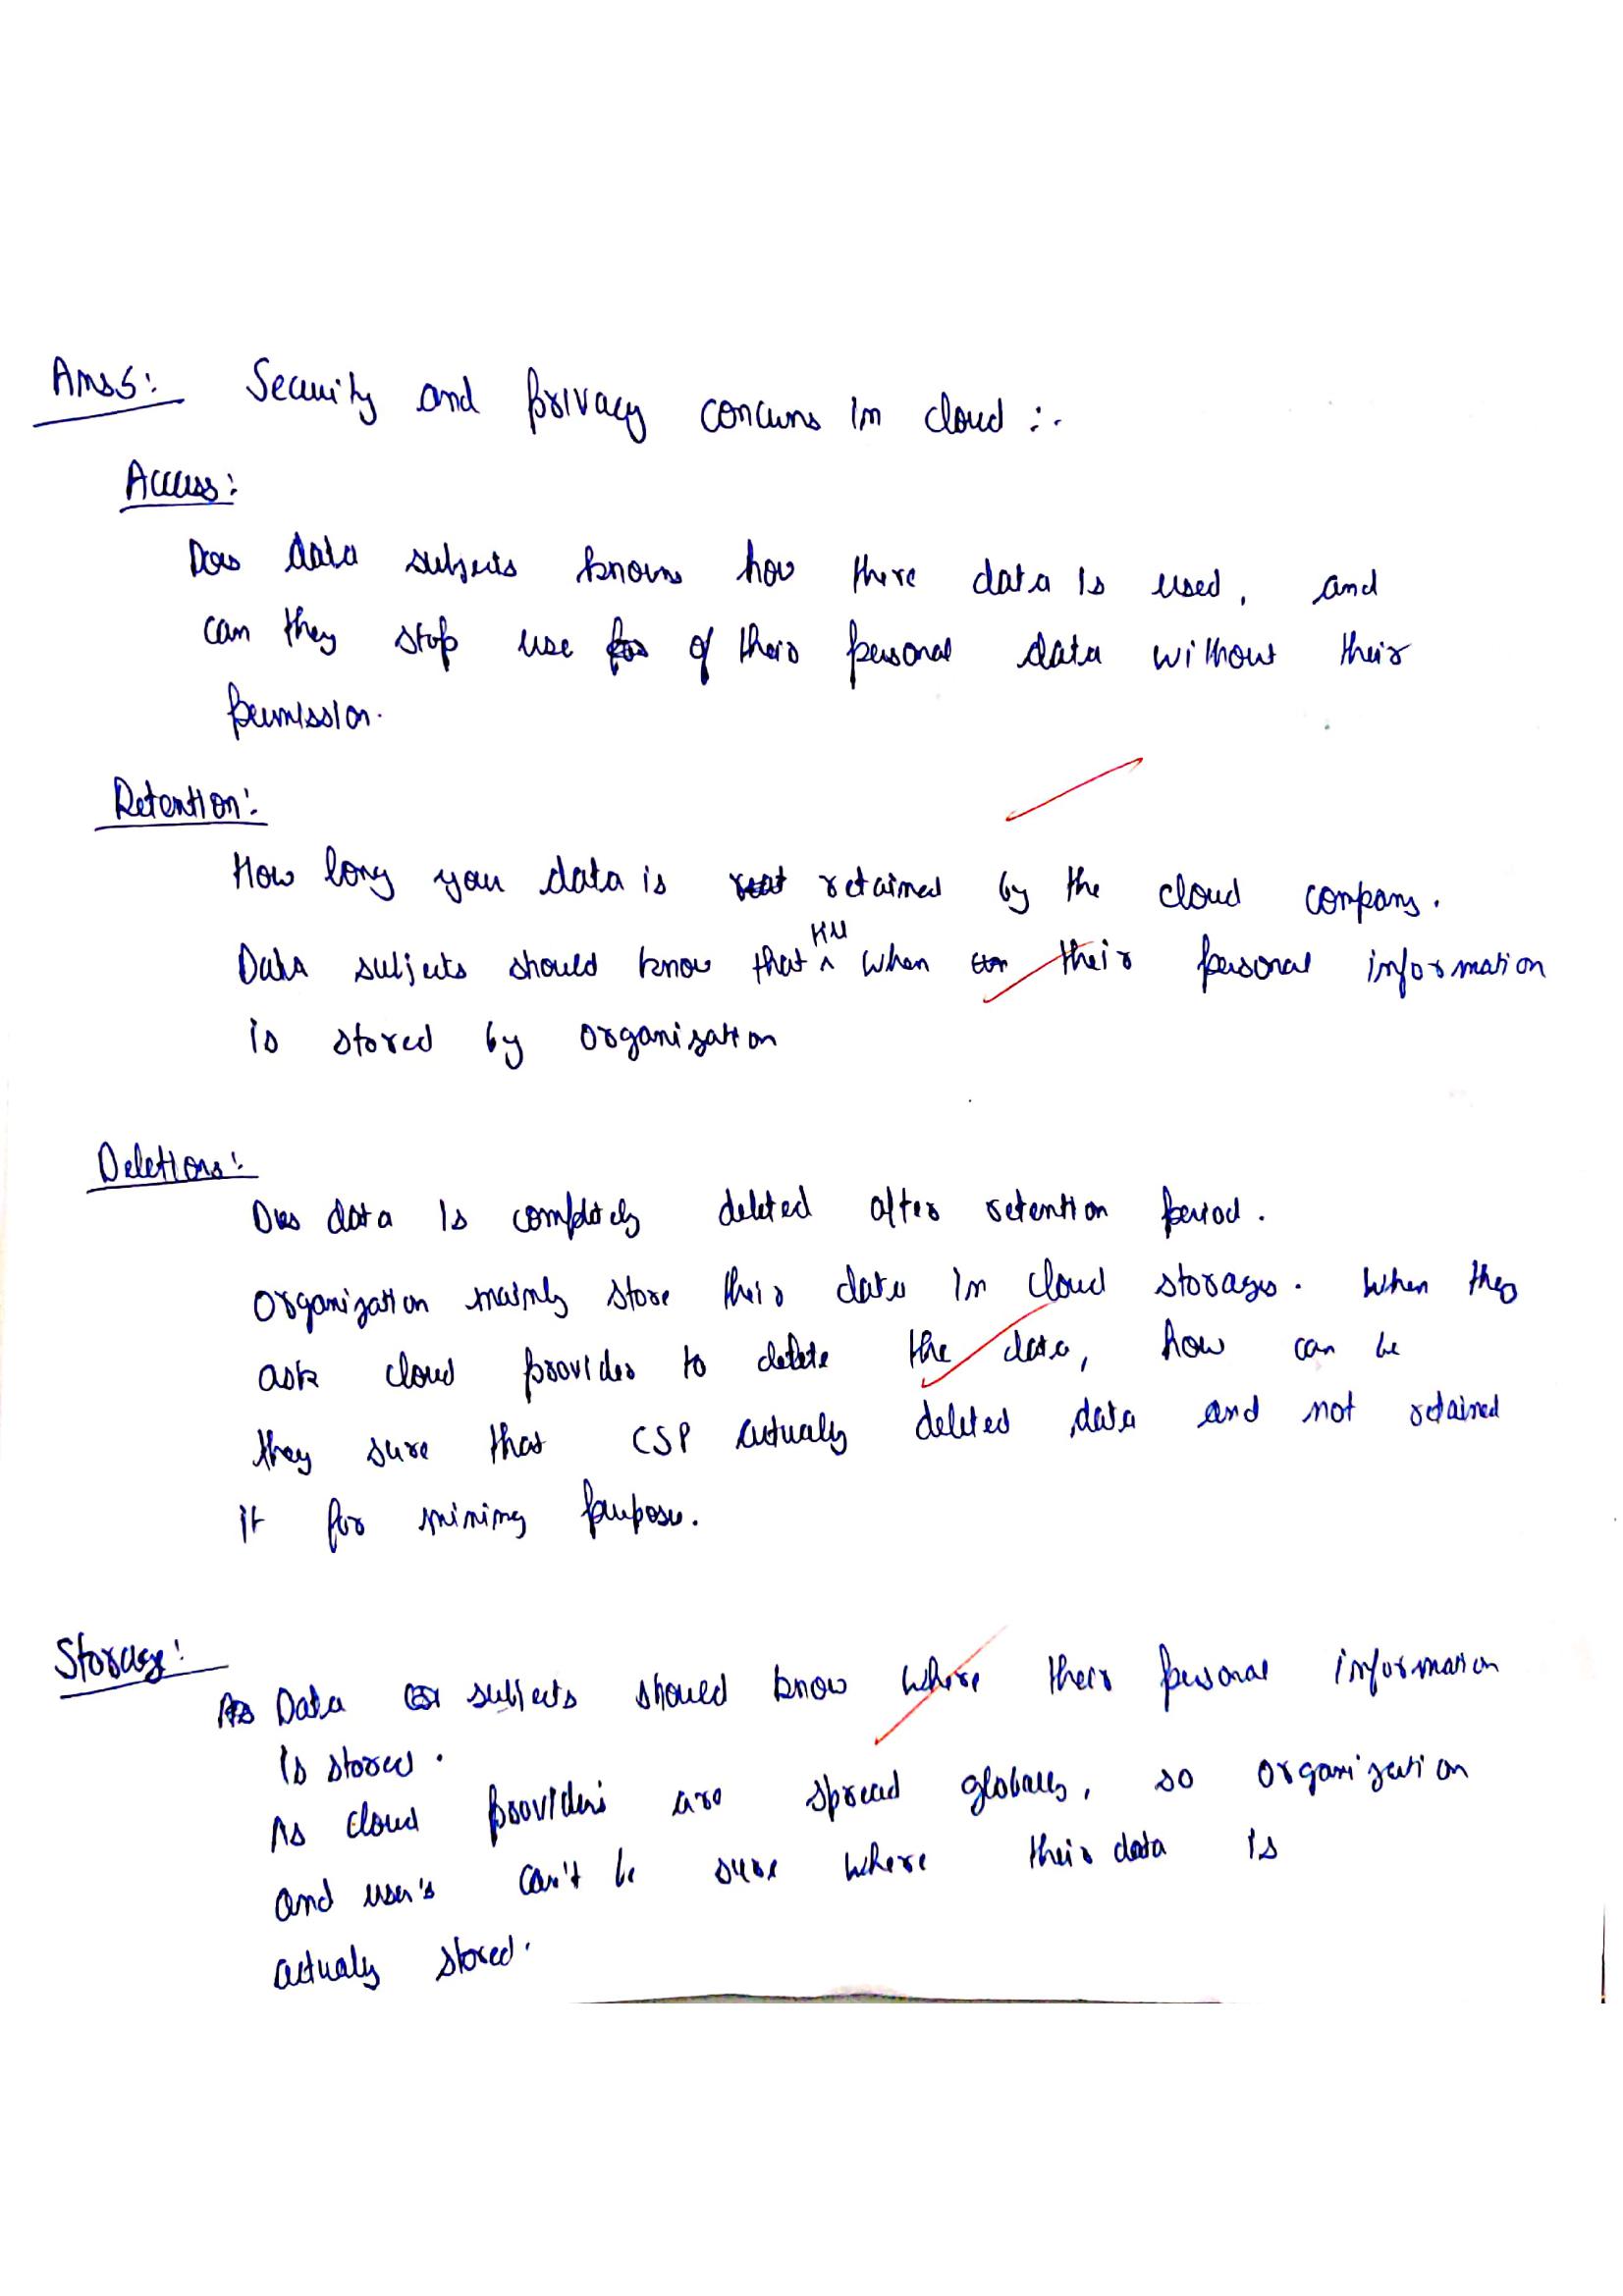 Ans5: Security and privacy concerns in cloud :-
Access:
Does data subjects knows how there data is used, and
can they stop use for of their personal data without their
permission.
Retention:
How long your data is retained by the cloud company.
Data subjects should know that till when their personal information
is stored by organization
Deletions:
Does data is completely deleted after retention period.
Organization mainly store their data in cloud storages. When they
ask cloud provider to delete the data, how can be
they sure that CSP actually deleted data and not retained
it for mining purpose.
Storage:
As Data subjects should know where their personal information
is stored.
As cloud providers are spread globally, so organization
and user's can't be sure where their data is
actually stored.